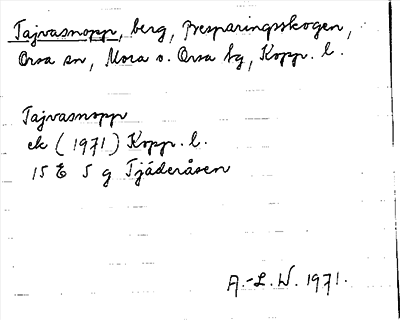 Tajvasnopp, berg, Besparingsskogen,
Orsa sn, Mora o. Orsa tg, Kopp. l.
Tajvasnopp
ek (1971) Kopp. l.
15 E 5 g Tjåderåsen
A.-L. W. 1971.